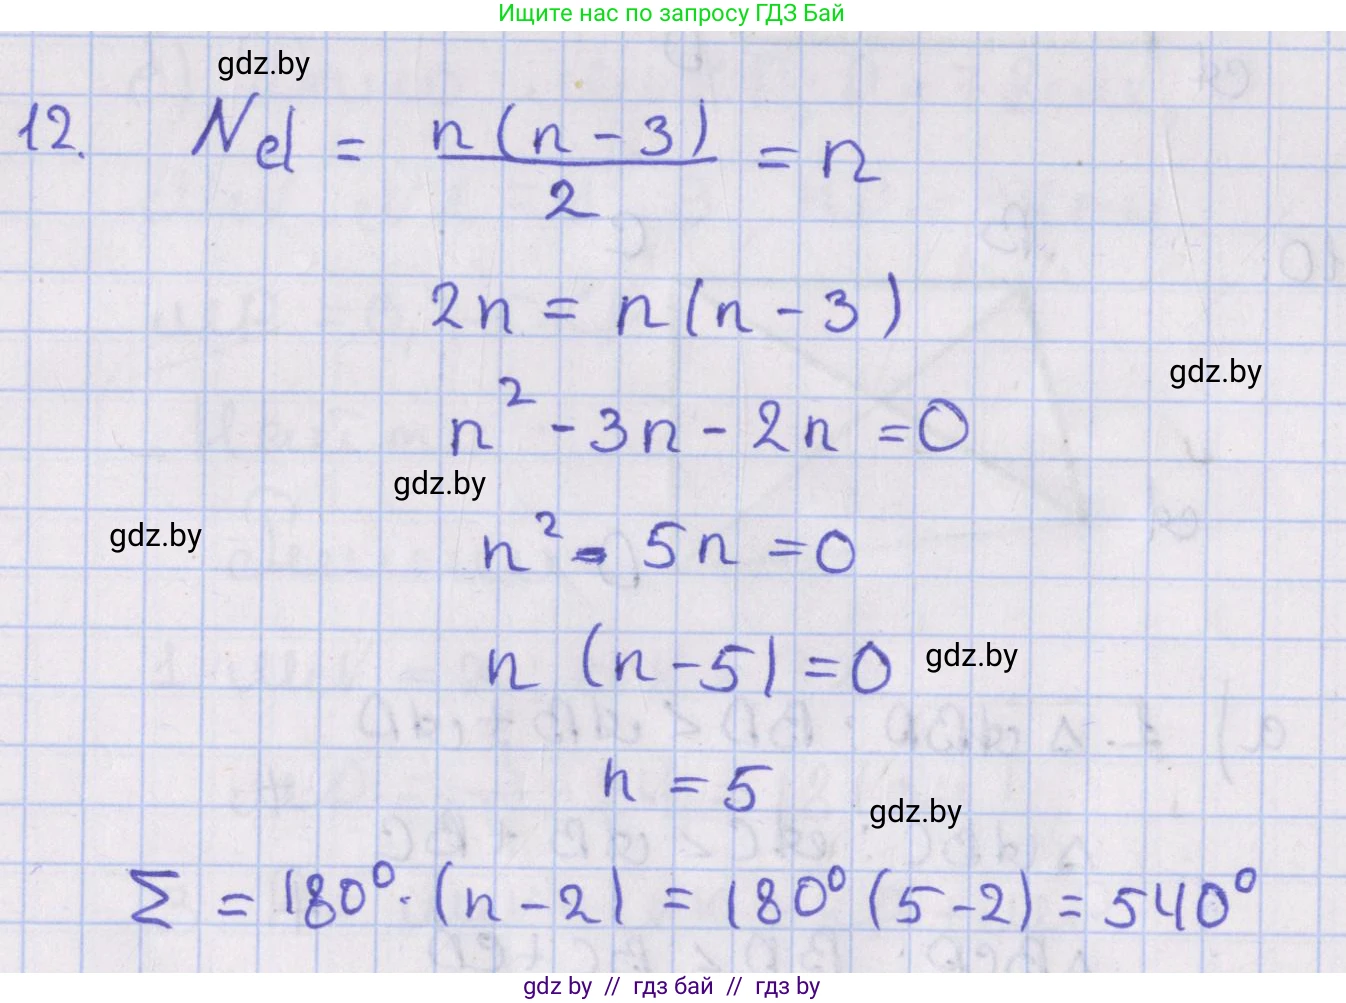 Ищите нас по запросу ГДЗ Бай
gdz.by
12. Nd = n(n-3)/2 = n
2n = n(n-3)
gdz.by
n² - 3n - 2n = 0
gdz.by
gdz.by
n² - 5n = 0
n (n-5) = 0
gdz.by
n = 5
gdz.by
Σ = 180° · (n-2) = 180° (5-2) = 540°
gdz.by // гдз бай // гдз by